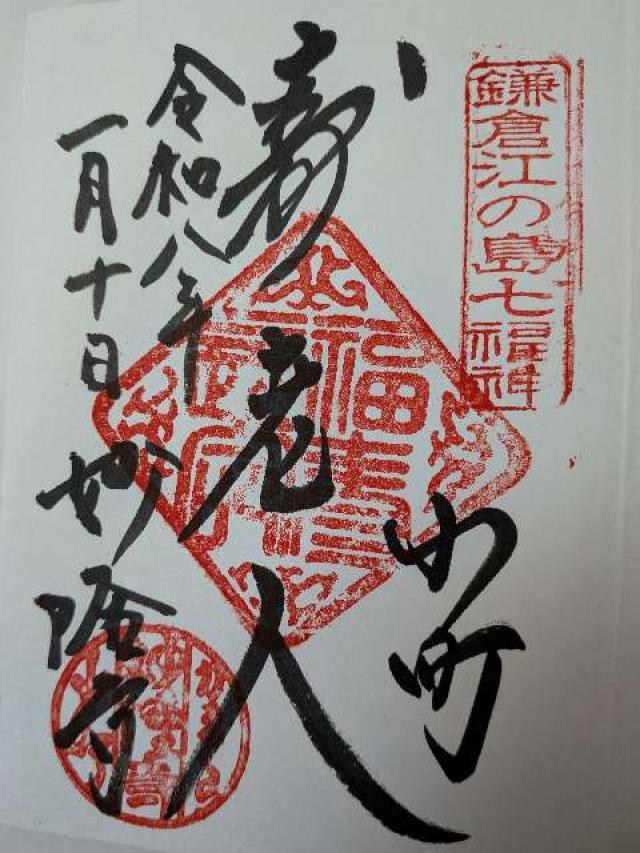 鎌倉江の島七福神
小町
寿老人
令和八年
一月十日
妙隆寺